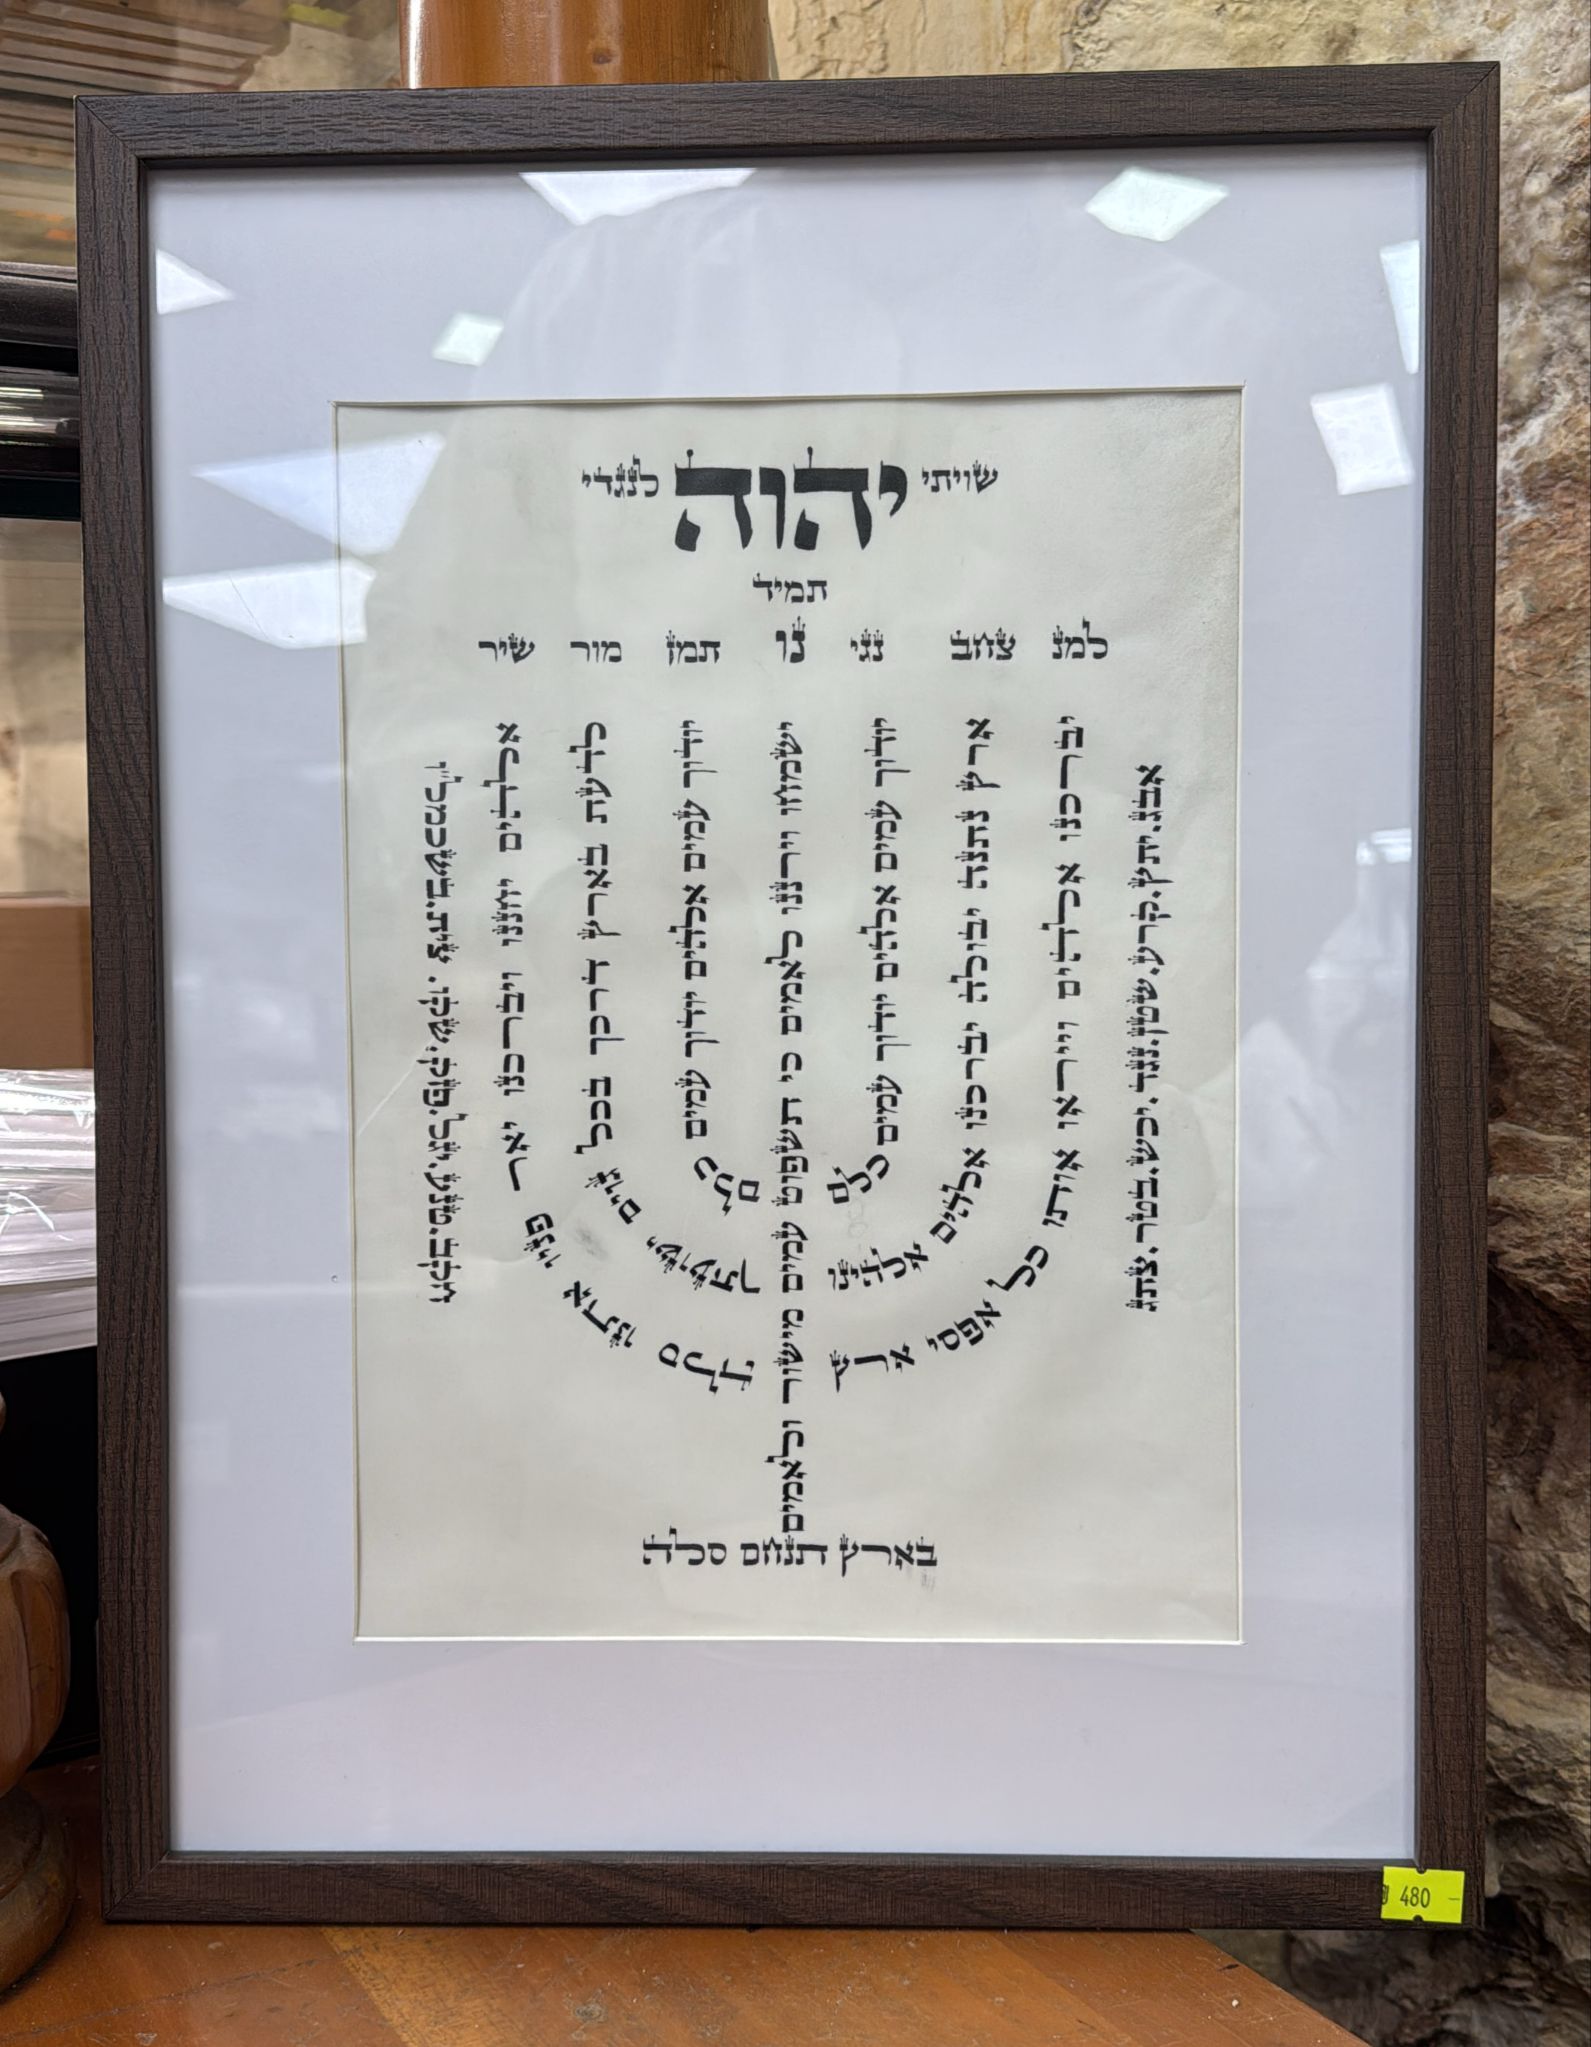 שויתי יהוה לנגדי
תמיד
למנ צחב נגי נו תמז מור שיר
אבג.יתץ.קרע.שטן.נגד.יכש.בטר.צתג
יברכנו אלהים וייראו אותו כל אפסי ארץ
ארץ נתנה יבולה יברכנו אלהים אלהינו
יודוך עמים אלהים יודוך עמים כלם
ישמחו וירננו לאמים כי תשפוט עמים מישור ולאמים
בארץ תנחם סלה
יודוך עמים אלהים יודוך עמים כלם
לדעת בארץ דרכך בכל גוים ישועתך
אלהים יחננו ויברכנו יאר פניו אתנו סלה
חקב.טנע.יגל.פזק.שקו.צית.בשכמל"ו
480